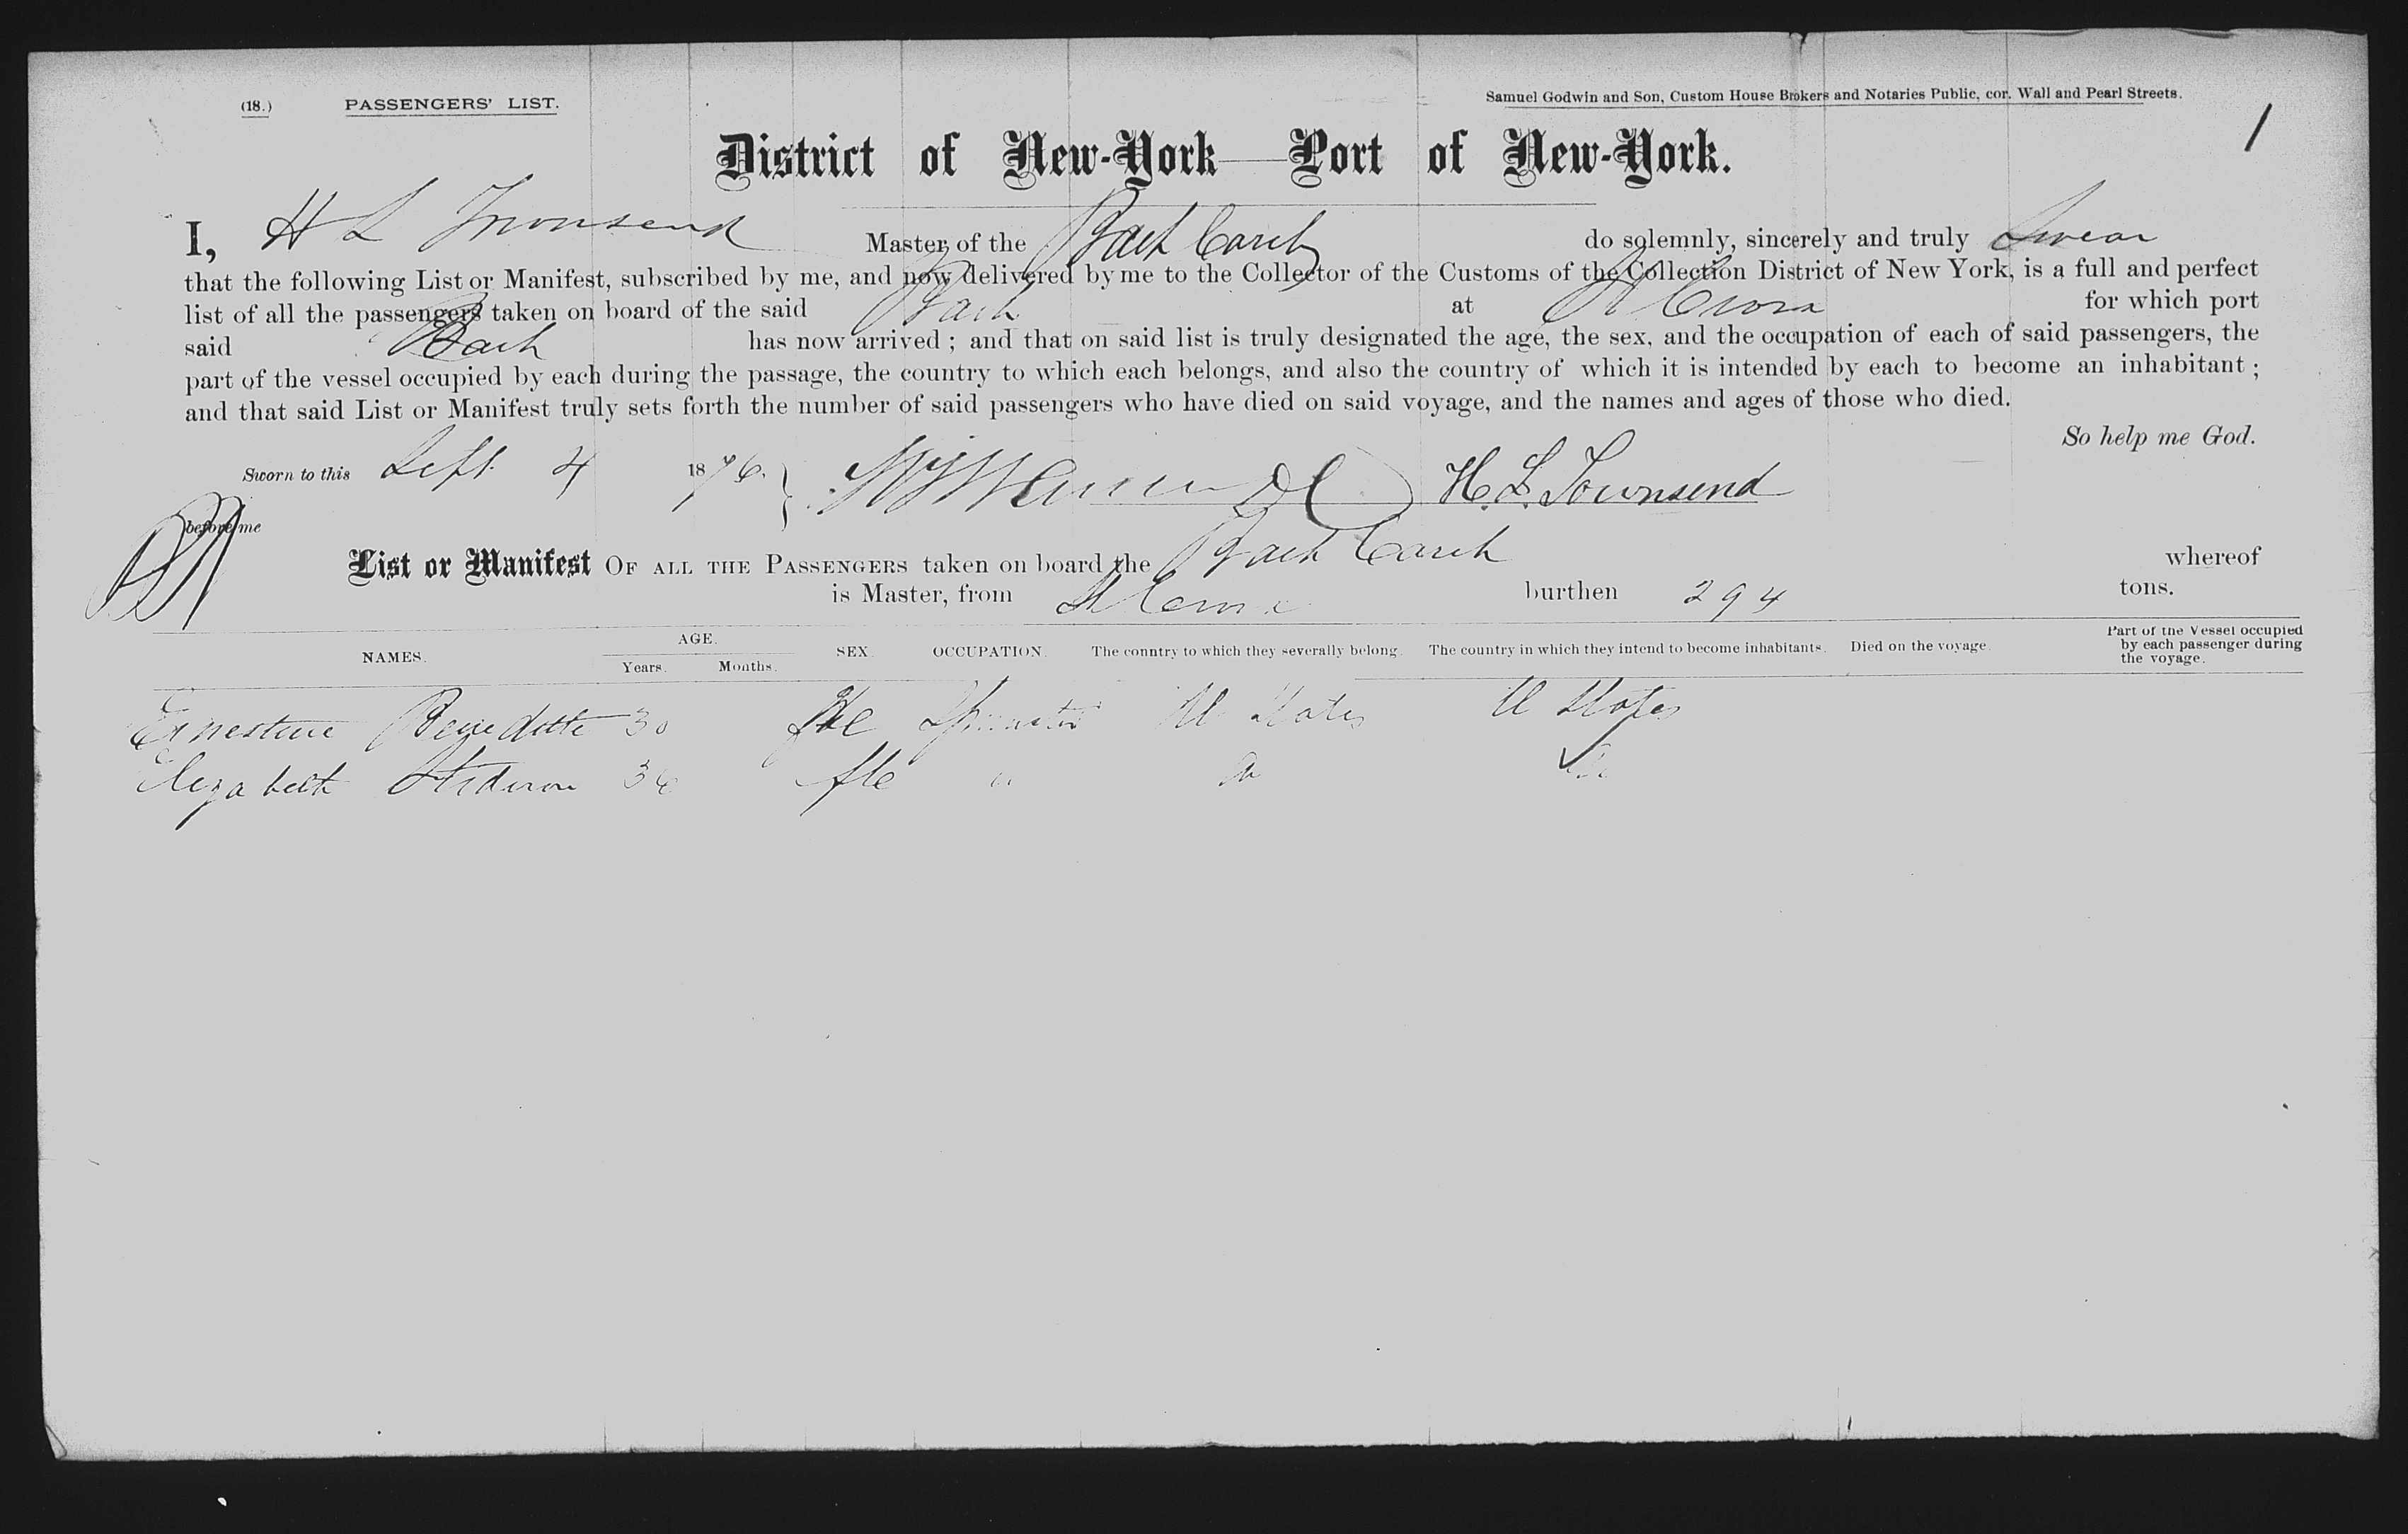 (18.) PASSENGERS' LIST. Samuel Godwin and Son, Custom House Brokers and Notaries Public, cor. Wall and Pearl Streets.
1
District of New-York—Port of New-York.
I, H L Townsend Master of the Bark Carib do solemnly, sincerely and truly Swear
that the following List or Manifest, subscribed by me, and now delivered by me to the Collector of the Customs of the Collection District of New York, is a full and perfect
list of all the passengers taken on board of the said Bark at St Croix for which port
said Bark has now arrived; and that on said list is truly designated the age, the sex, and the occupation of each of said passengers, the
part of the vessel occupied by each during the passage, the country to which each belongs, and also the country of which it is intended by each to become an inhabitant;
and that said List or Manifest truly sets forth the number of said passengers who have died on said voyage, and the names and ages of those who died.
So help me God.
Sworn to this Sept 4 1876. H. L. Townsend
before me
List or Manifest OF ALL THE PASSENGERS taken on board the Bark Carib whereof
is Master, from St Croix burthen 294 tons.
NAMES. AGE. Years. Months. SEX. OCCUPATION. The country to which they severally belong. The country in which they intend to become inhabitants. Died on the voyage. Part of the Vessel occupied by each passenger during the voyage.
Ernestine Benedette 30 fle Spinster U States U States
Elizabeth 36 fle " Do Do